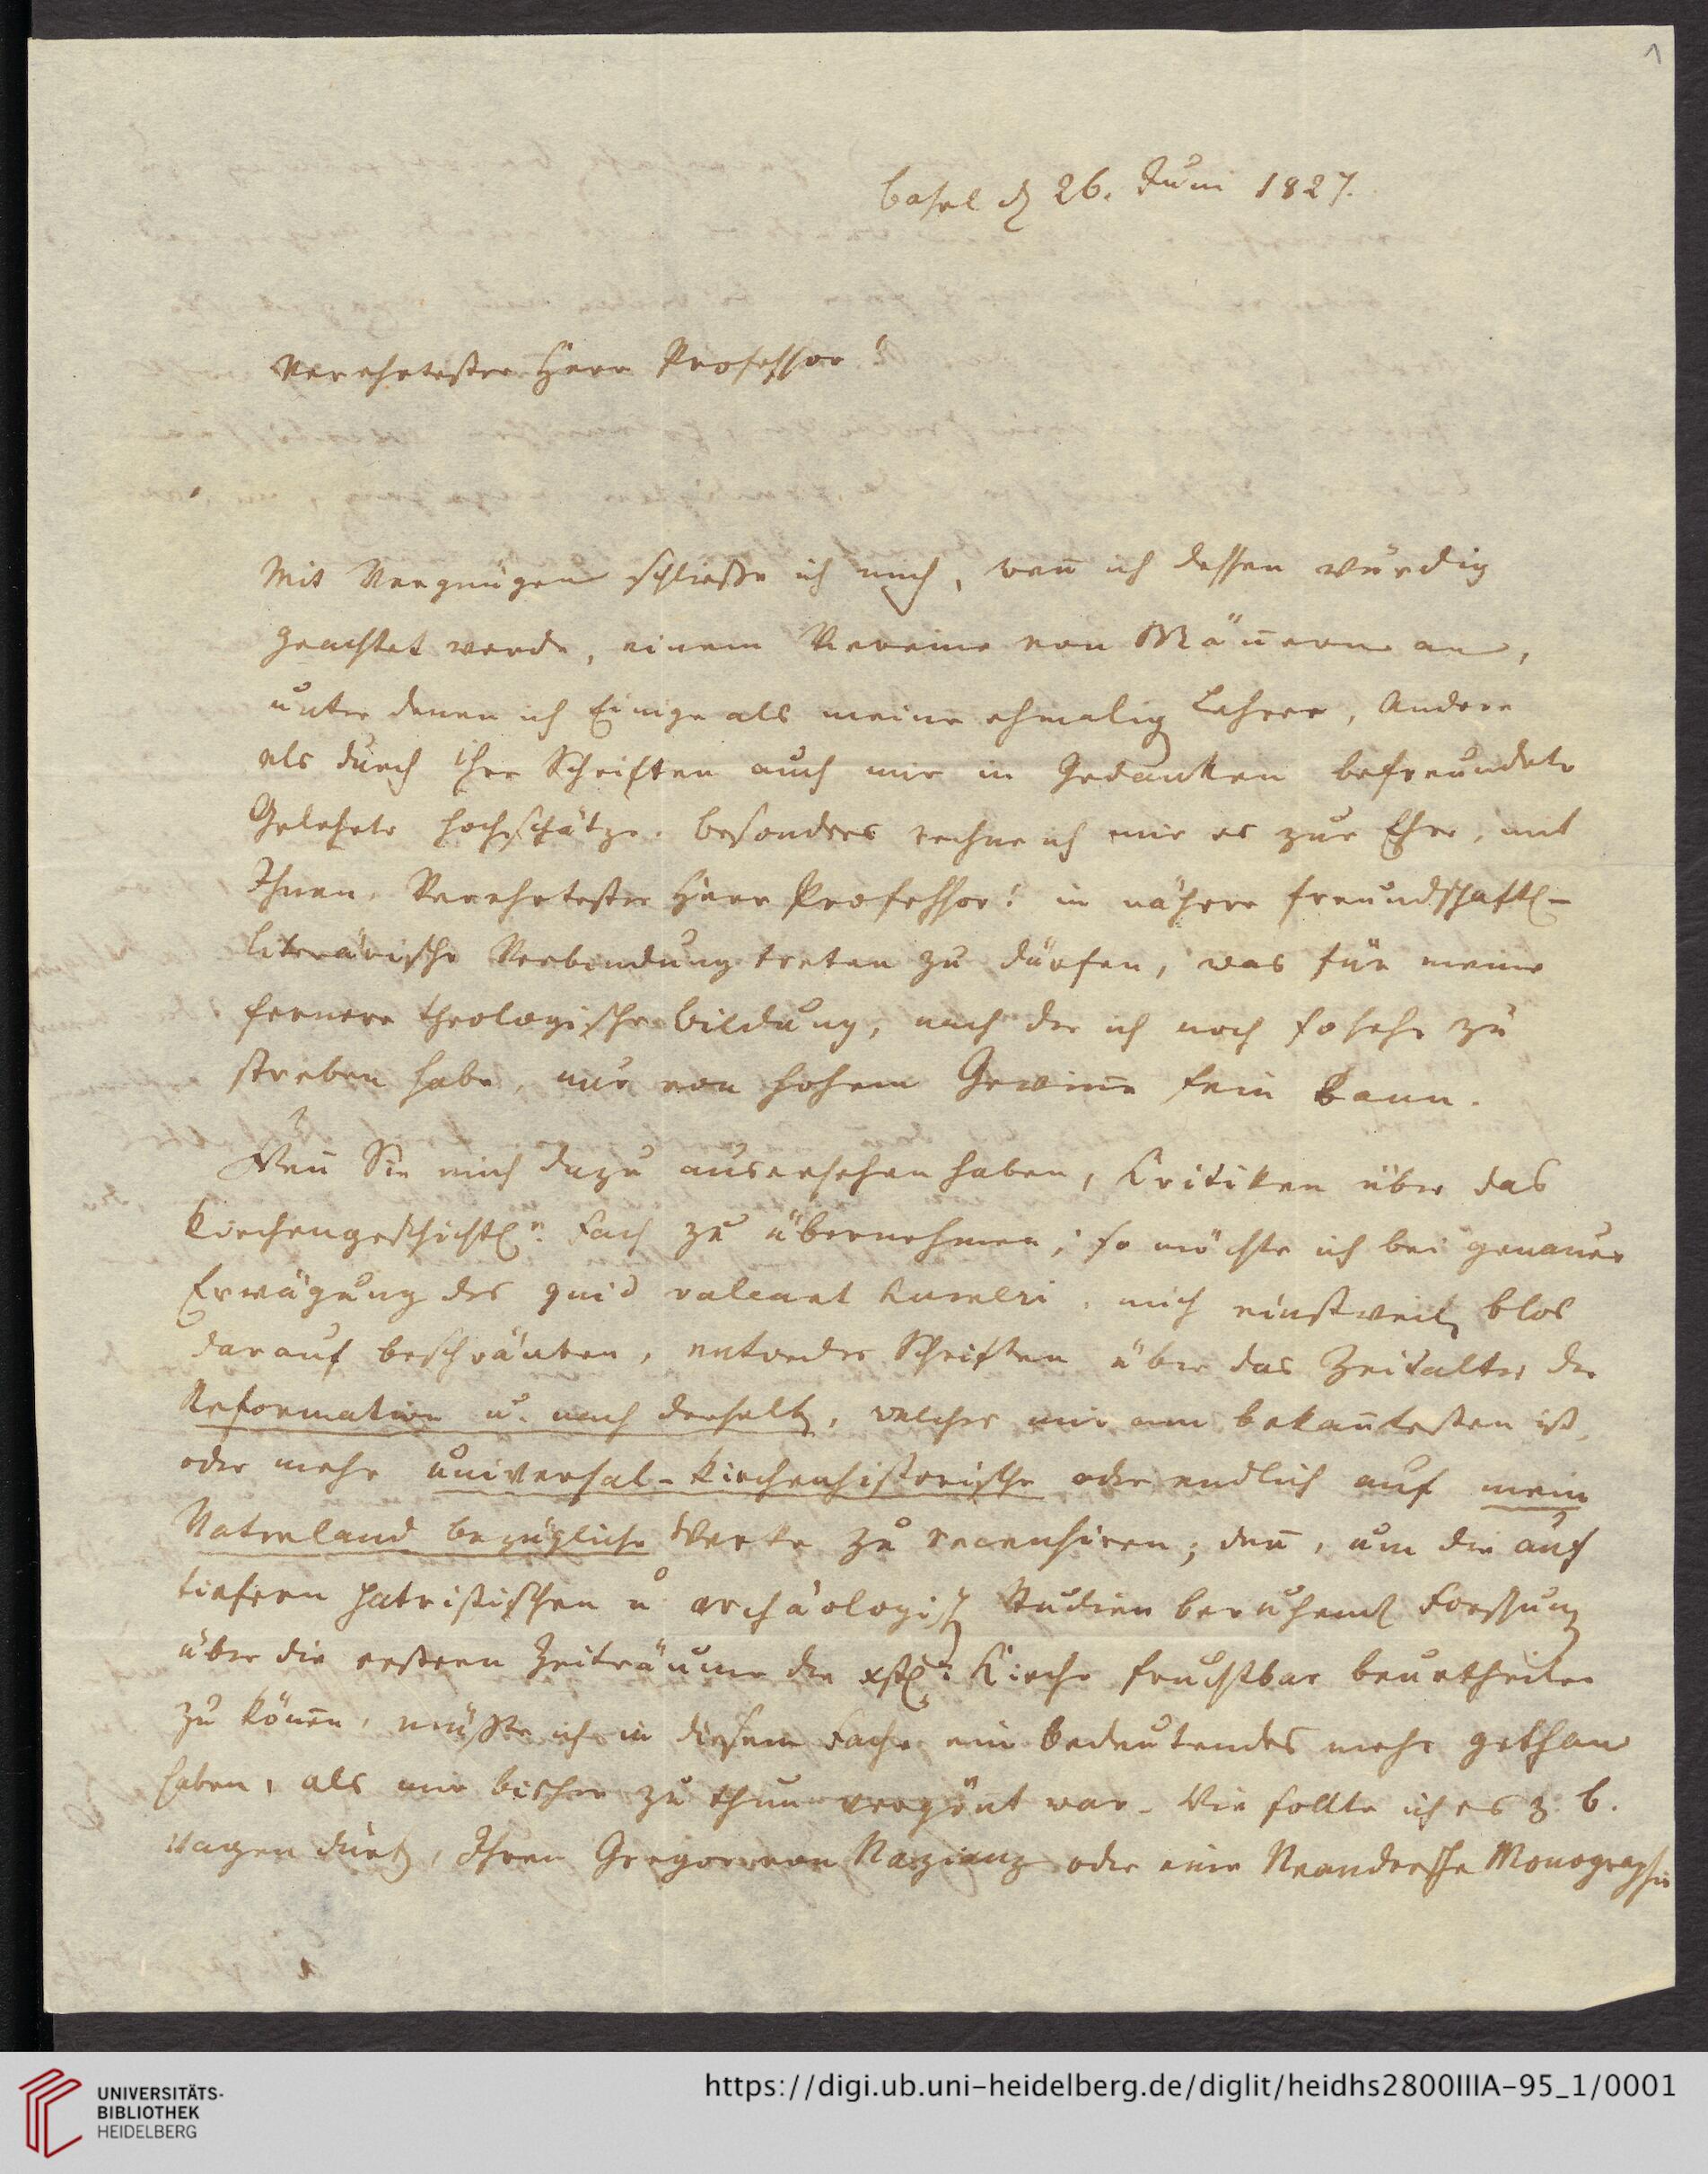 1
Basel d. 26. Juni 1827.
Verehrtester Herr Professor!
Mit Vergnügen schließe ich mich, wen̄ ich dessen würdig
geachtet werde, einem Vereine von Män̄ern an,
unter denen ich Einige als meine ehmalig Lehrer, Andere
als durch ihre Schriften auch mir in Gedanken befreundete
Gelehrte hochschätze. Besonders rechne ich mir es zur Ehre, mit
Ihnen, Verehrtester Herr Professor! in nähere freundschaftl-
literärische Verbindung treten zu dürfen, was für meine
fernere theologische Bildung, nach der ich noch so sehr zu
streben habe, nur von hohem Gewin̄e sein kann.
Wen̄ Sie mich dazu ausersehen haben, Kritiken über das
kirchengeschichtln. Fach zu übernehmen; so möchte ich bei genauer
Erwägung des quid valeant humeri, mich einstweil blos
darauf beschränken, entweder Schriften über das Zeitalter der
Reformation u. nach derselb, welches mir am bekan̄testen ist
oder mehr universal-kirchenhistorische oder endlich auf mein
Vaterland bezügliche Werke zu recensiren; den̄, um die auf
tiefern patristischen u archäologisch Studien beruhend Forschung
über die erstern Zeiträume der xstl: Kirche fruchtbar beurtheilen
zu kön̄en, müßte ich in diesem Fache ein Bedeutendes mehr gethan
haben, als mir bisher zu thun vergön̄t war. Wie sollte ich es z. B.
wagen dürf, Ihren Gregor von Nazianz oder eine Neandersche Monographie
UNIVERSITÄTS-
BIBLIOTHEK
HEIDELBERG
https://digi.ub.uni-heidelberg.de/diglit/heidhs2800IIIA-95_1/0001